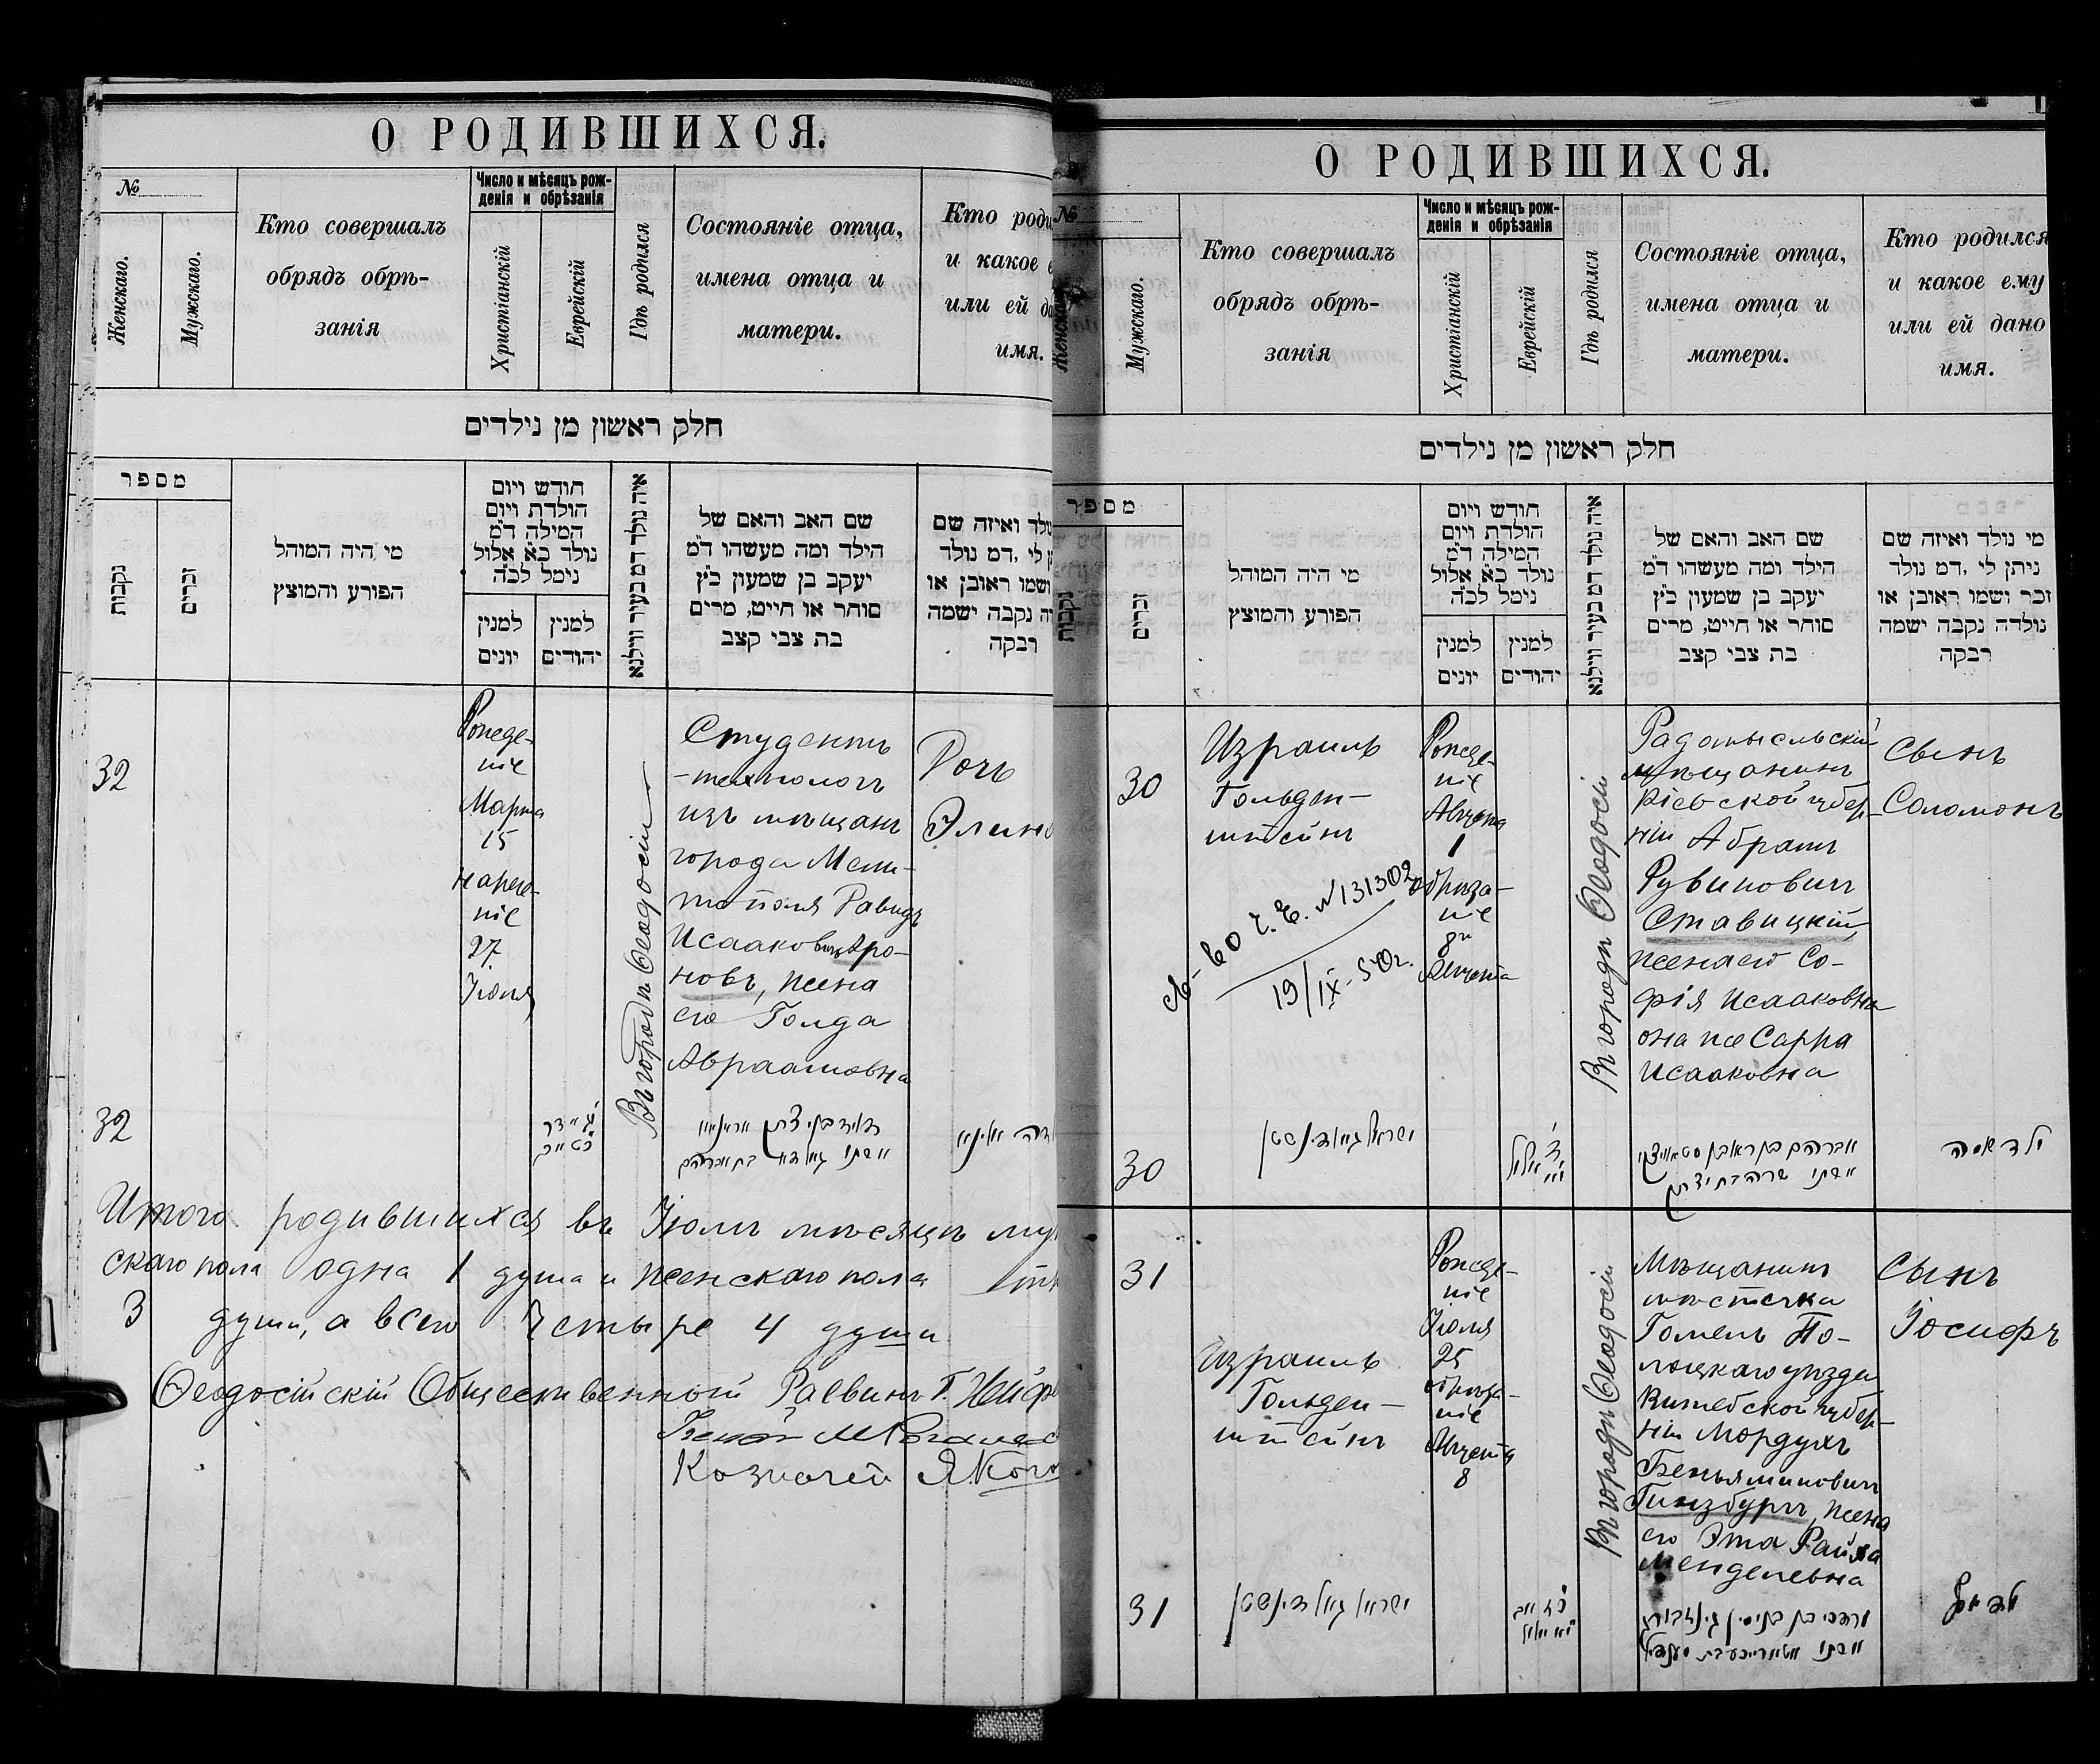 О РОДИВШИХСЯ.
№
Женскаго.
Мужскаго.
Кто совершалъ
обрядъ обрѣ-
занія
Число и мѣсяцъ рож-
денія и обрѣзанія
Христіанскій
Еврейскій
Гдѣ родился
Состояніе отца,
имена отца и
матери.
Кто роди
и какое е
или ей да
имя.
חלק ראשון מן נילדים
מספר
נקבות
זכרים
מי היה המוהל
הפורע והמוצץ
חודש ויום
הולדת ויום
המילה ד״מ
נולד כ״א אלול
נימל לכ״ה
למנין
יונים
למנין
יהודים
איה נולד דמ בעיר ווילנא
שם האב והאם של
הילד ומה מעשהו ד״מ
יעקב בן שמעון כ״ץ
סוחר או חייט, מרים
בת צבי קצב
ולד ואיזה שם
לי ,דמ נולד
ושמו ראובן או
נקבה ישמה
רבקה
32
Рожде-
ніе
Марта
15
нарече-
ніе
27
Іюля
Въ городѣ Ѳеодосіи
Студентъ
-технологъ
изъ мѣщанъ
города Мели-
тополя Давидъ
Исааковичъ Аро-
новъ, жена
его Голда
Авраамовна
Дочь
Элино
32
דוד בן יצחק
ואשתו גאלדא בת אברהם
Итого родившихся въ Іюлѣ мѣсяцѣ му
скаго пола одна 1 душа и женскаго пола
3 души, а всего Четыре 4 души
Ѳеодосійскій Общественный Раввинъ Г. Нейф
Казначей Я Кого
О РОДИВШИХСЯ.
№
Женскаго
Мужскаго.
Кто совершалъ
обрядъ обрѣ-
занія
Число и мѣсяцъ рож-
денія и обрѣзанія
Христіанскій
Еврейскій
Гдѣ родился
Состояніе отца,
имена отца и
матери.
Кто родился
и какое ему
или ей дано
имя.
חלק ראשון מן נילדים
מספר
נקבות
זכרים
מי היה המוהל
הפורע והמוצץ
חודש ויום
הולדת ויום
המילה ד״מ
נולד כ״א אלול
נימל לכ״ה
למנין
יונים
למנין
יהודים
איה נולד דמ בעיר ווילנא
שם האב והאם של
הילד ומה מעשהו ד״מ
יעקב בן שמעון כ״ץ
סוחר או חייט, מרים
בת צבי קצב
מי נולד ואיזה שם
ניתן לי ,דמ נולד
זכר ושמו ראובן או
נולדה נקבה ישמה
רבקה
30
Израиль
Гольден-
штейнъ
св-во І.Е. №131302
19/IX-50г.
Рожде-
ніе
Августа
1
обрѣза-
ніе
8го
Августа
Въ городѣ Ѳеодосіи
Радомысльскій
мѣщанинъ
Кіевской губер-
ніи Абрамъ
Рувиновичъ
Ставицкій,
жена его Со-
фія Исааковна
она же Сарра
Исааковна
Сынъ
Соломонъ
30
ישראל גאלדינשטיין
אברהם בן ראובן סטאוויצקי
ואשתו שרה בת יצחק
31
Израиль
Гольден-
штейнъ
Рожде-
ніе
Іюля
25
обрѣза-
ніе
Августа
8
Въ городѣ Ѳеодосіи
Мѣщанинъ
мѣстечка
Гомель По-
лоцкаго уѣзда
Витебской губер-
ніи Мордухъ
Беньяминовичъ
Гинзбургъ, жена
его Эта Райха
Менделевна
Сынъ
Іосифъ
31
ישראל גאלדינשטיין
מרדכי בן בנימין גינזבורג